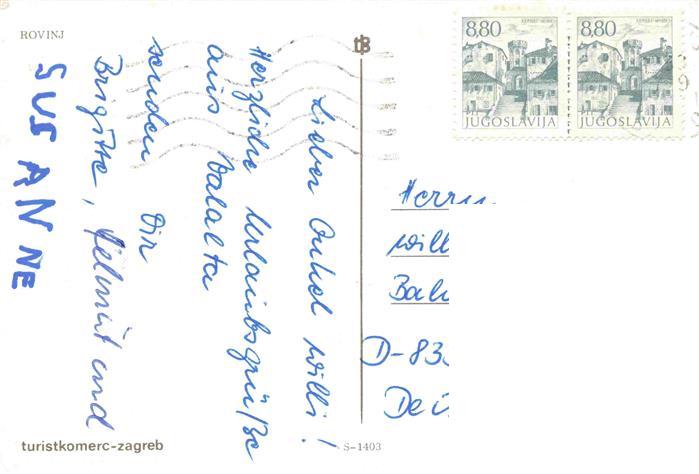 ROVINJ
Lieber Onkel Willi!
Herzliche Urlaubsgrüße
aus Valalta
senden Dir
Brigitte, Helmut und
SUSANNE
turistkomerc-zagreb
S-1403
8,80
JUGOSLAVIJA
8,80
JUGOSLAVIJA
Herrn
Willi
D-83